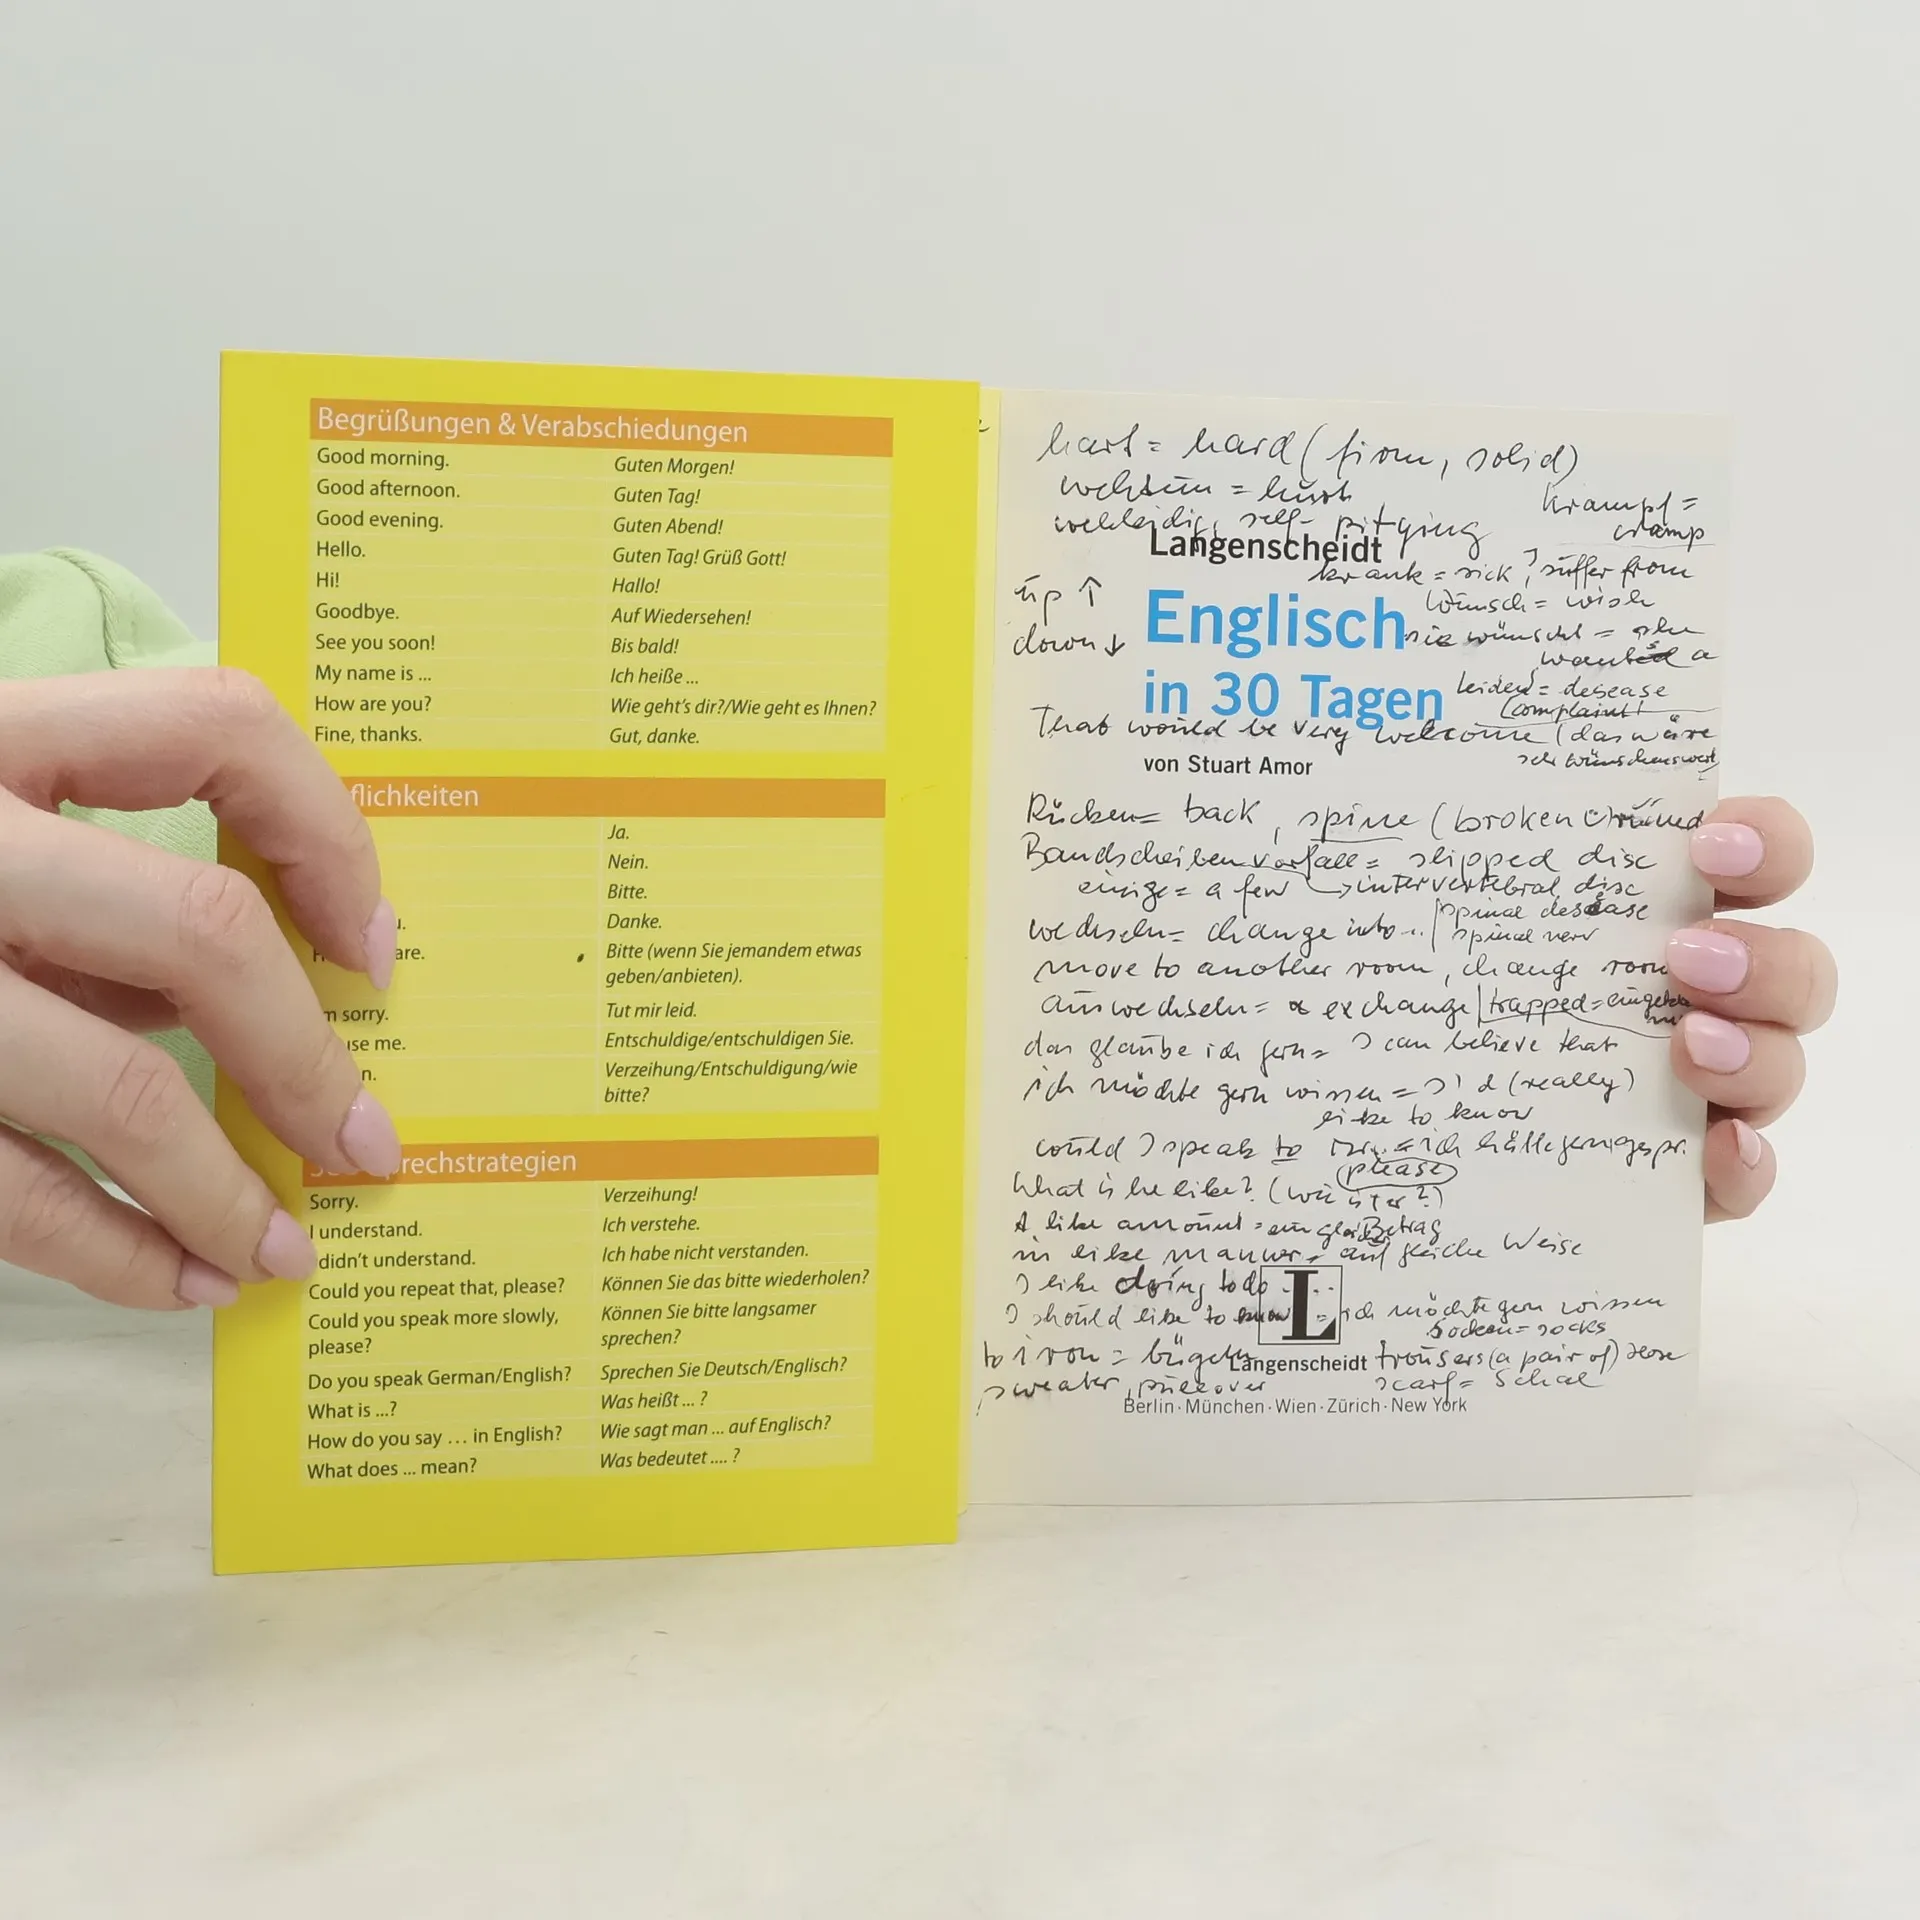 Begrüßungen & Verabschiedungen
Good morning. Guten Morgen!
Good afternoon. Guten Tag!
Good evening. Guten Abend!
Hello. Guten Tag! Grüß Gott!
Hi! Hallo!
Goodbye. Auf Wiedersehen!
See you soon! Bis bald!
My name is ... Ich heiße ...
How are you? Wie geht's dir?/Wie geht es Ihnen?
Fine, thanks. Gut, danke.
flichkeiten
Ja.
Nein.
Bitte.
u. Danke.
are. Bitte (wenn Sie jemandem etwas
geben/anbieten).
m sorry. Tut mir leid.
use me. Entschuldige/entschuldigen Sie.
n. Verzeihung/Entschuldigung/wie
bitte?
prechstrategien
Sorry. Verzeihung!
I understand. Ich verstehe.
didn't understand. Ich habe nicht verstanden.
Could you repeat that, please? Können Sie das bitte wiederholen?
Could you speak more slowly, Können Sie bitte langsamer
please? sprechen?
Do you speak German/English? Sprechen Sie Deutsch/Englisch?
What is ...? Was heißt ... ?
How do you say ... in English? Wie sagt man ... auf Englisch?
What does ... mean? Was bedeutet .... ?
hart = hard (firm, solid)
wehtun = hurt
Krampf =
cramp
wehleidig, self-pitying
Langenscheidt
krank = sick, suffer from
up ↑
down ↓
Englisch
in 30 Tagen
Wunsch = wish
sie wünscht = she
a
Leiden = desease
complaint!
That would be very welcome (das wäre
sehr wünschenswert
von Stuart Amor
Rücken = back, spine (broken
Bandscheibenvorfall = slipped disc
einige = a few → intervertebral disc
spinal desease
wechseln = change into .. spinal nerv
move to another room, change room
auswechseln = exchange | trapped =
das glaube ich gern = I can believe that
ich möchte gern wissen = I'd (really)
like to know
could I speak to = ich hätte gern gespr.
please
What is he like? (wie ist er?)
A like amount = ein gleicher Betrag
in like manner = auf gleiche Weise
I like doing to do ...
I should like to know = ich möchte gern wissen
Socken = socks
to iron = bügeln trousers (a pair of) Hose
sweater, pullover scarf = Schal
L
Langenscheidt
Berlin · München · Wien · Zürich · New York